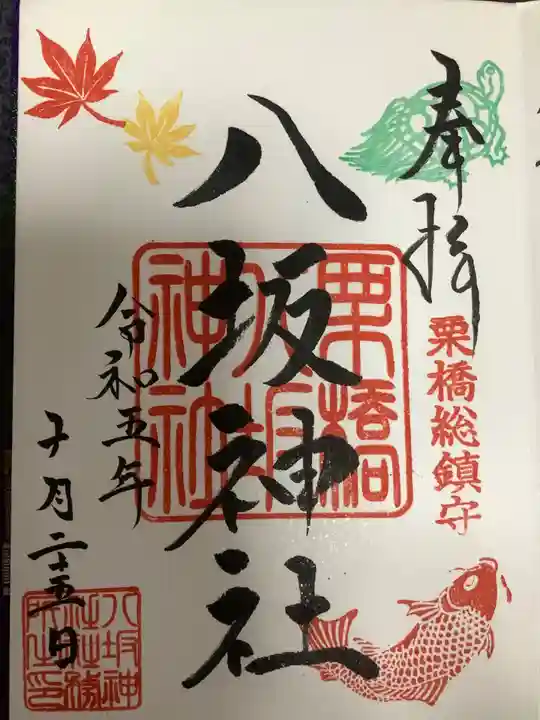 奉拝
栗橋総鎮守
八坂神社
栗橋
八坂
神社
令和五年
十月二十五日
八坂神
社社務